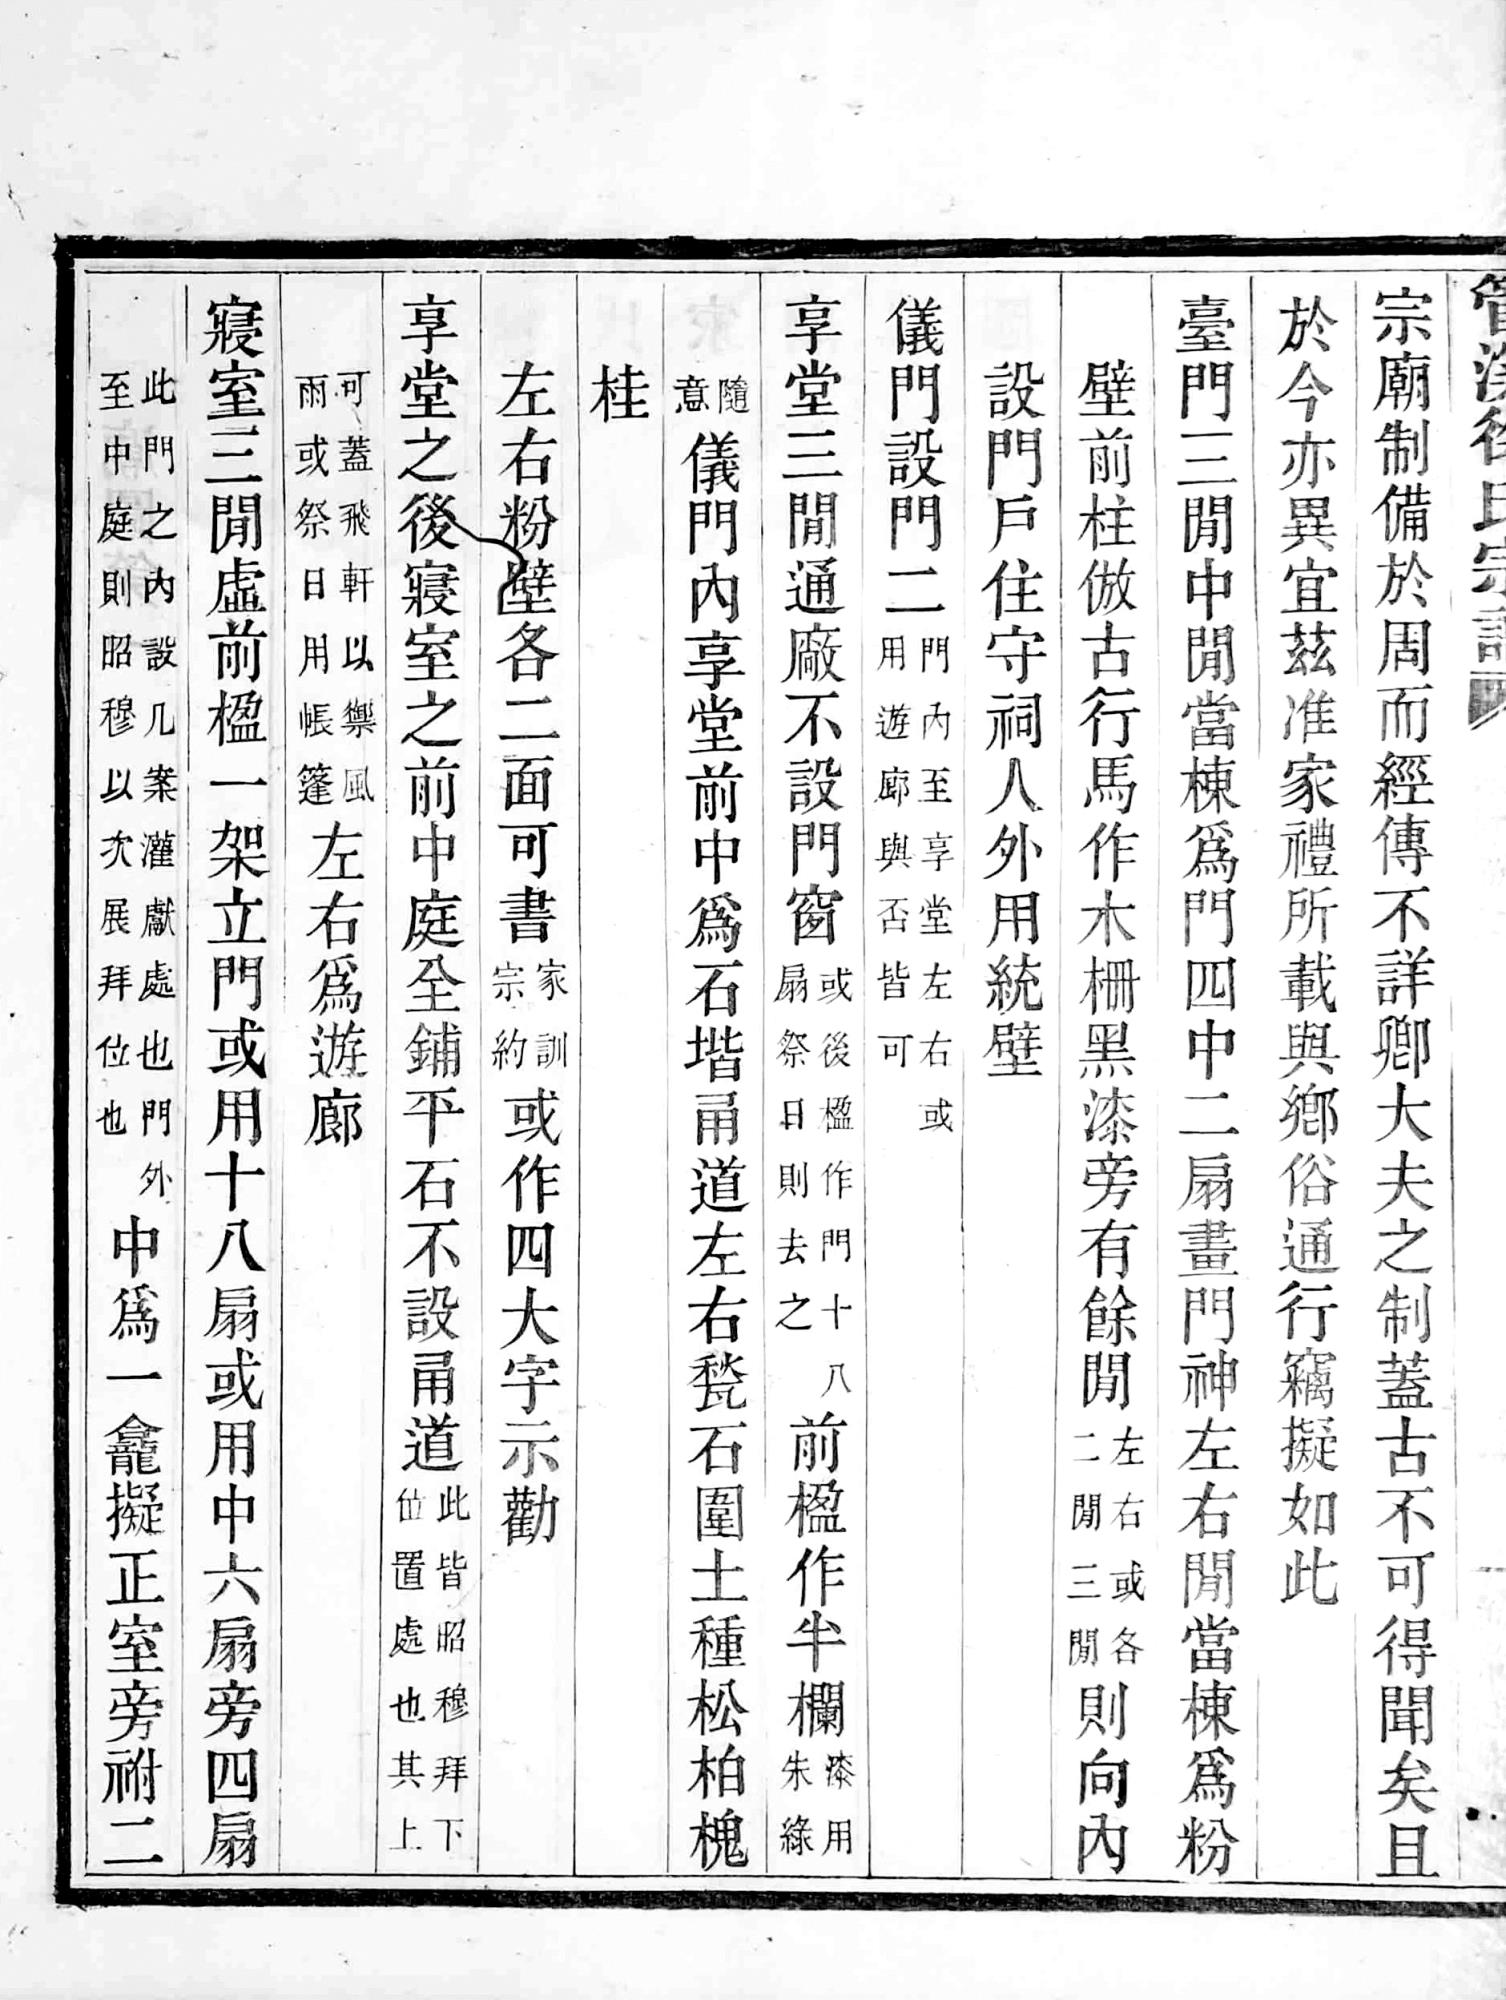 宗廟制備於周而經傳不詳卿大夫之制蓋古不可得聞矣且
於今亦異宜茲准家禮所載與鄉俗通行竊擬如此
臺門三閒中閒當棟爲門四中二扇畫門神左右閒當棟爲粉
壁前柱倣古行馬作木柵黑漆旁有餘閒左右或各二閒三閒則向內
設門戶住守祠人外用統壁
儀門設門二門內至享堂左右或用遊廊與否皆可
享堂三閒通廠不設門窗或後楹作門十八扇祭日則去之前楹作半欄漆用朱綠
隨意儀門內享堂前中爲石堦甬道左右甃石圍土種松柏槐
桂
左右粉壁各二面可書家訓宗約或作四大字示勸
享堂之後寢室之前中庭全鋪平石不設甬道此皆昭穆拜下位置處也其上
可蓋飛軒以禦風雨或祭日用帳篷左右爲遊廊
寢室三閒虛前楹一架立門或用十八扇或用中六扇旁四扇
此門之內設几案灌獻處也門外至中庭則昭穆以次展拜位也中爲一龕擬正室旁祔二